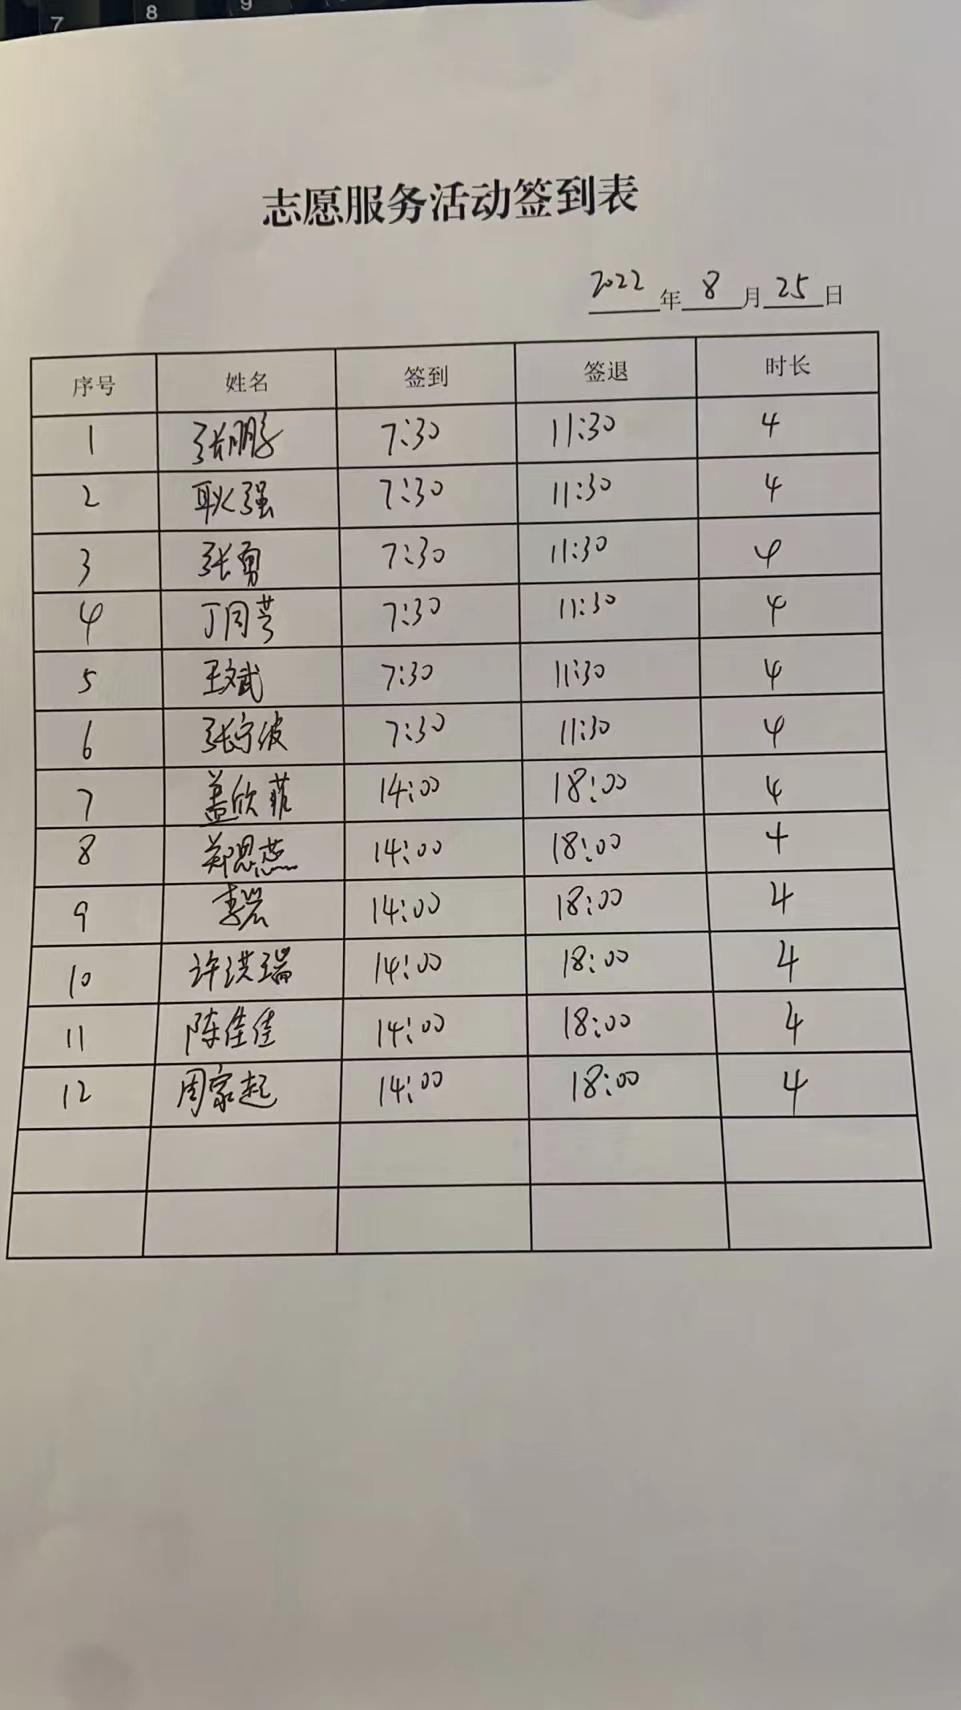 7 8 9
志愿服务活动签到表
2022年8月25日
序号 姓名 签到 签退 时长
1 张鹏 7:30 11:30 4
2 耿强 7:30 11:30 4
3 张勇 7:30 11:30 4
4 丁同芳 7:30 11:30 4
5 王斌 7:30 11:30 4
6 张宁波 7:30 11:30 4
7 盖欣菲 14:00 18:00 4
8 郑思燕 14:00 18:00 4
9 李岩 14:00 18:00 4
10 许洪瑞 14:00 18:00 4
11 陈佳佳 14:00 18:00 4
12 周家起 14:00 18:00 4